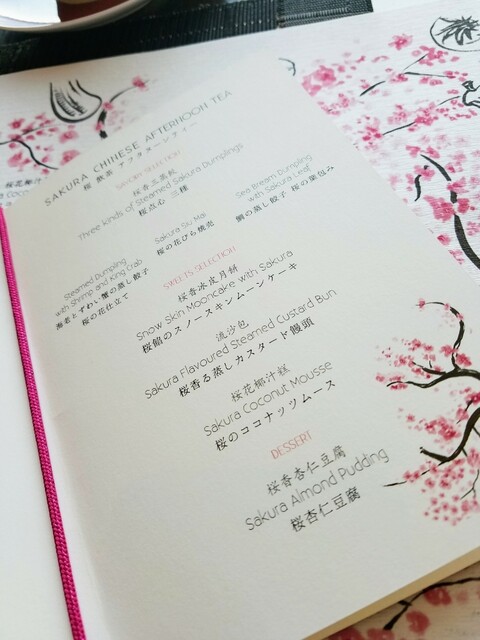 SAKURA CHINESE AFTERNOON TEA
桜 飲茶 アフタヌーンティー
SAVORY SELECTION
桜香三蒸餃
Three Kinds of Steamed Sakura Dumplings
桜点心 三種
Steamed Dumpling
with Shrimp and King Crab
海老とずわい蟹の蒸し餃子
桜の花仕立て
Sakura Siu Mai
桜の花びら焼売
Sea Bream Dumpling
with Sakura Leaf
鯛の蒸し餃子 桜の葉包み
SWEETS SELECTION
桜香冰皮月餅
Snow Skin Mooncake with Sakura
桜餡のスノースキンムーンケーキ
流沙包
Sakura Flavoured Steamed Custard Bun
桜香る蒸しカスタード饅頭
桜花椰汁糕
Sakura Coconut Mousse
桜のココナッツムース
DESSERT
桜香杏仁豆腐
Sakura Almond Pudding
桜杏仁豆腐
桜花椰汁